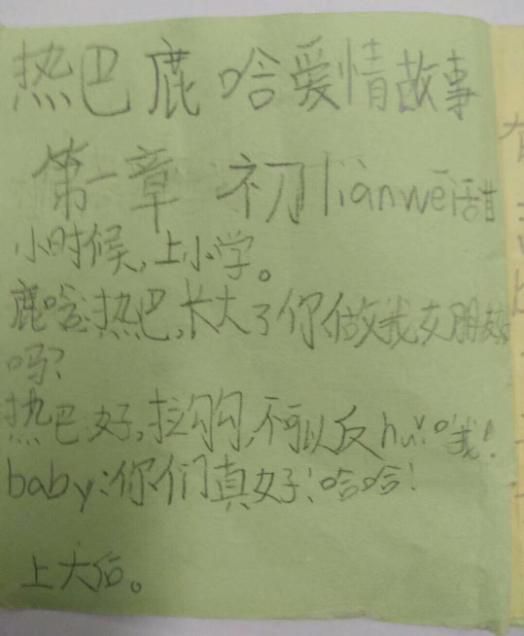 热巴鹿哈爱情故事
第一章 初lianwei甜
小时候,上小学。
鹿哈:热巴,长大了你做我女朋友
吗?
热巴:好,拉勾勾,不可以反hui哦!
baby:你们真好!哈哈!
上大后。